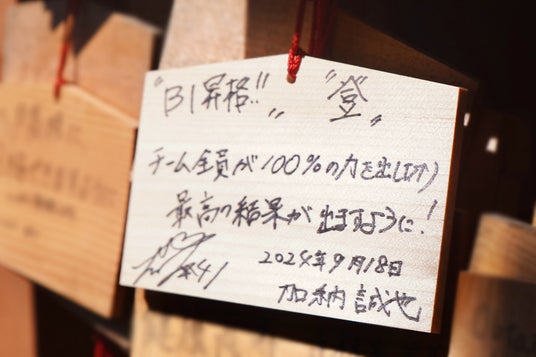 "B1昇格!!" "登"
チーム全員が100%の力を出し切り
最高の結果が出ますように!
2024年9月18日
#41 加納 誠也